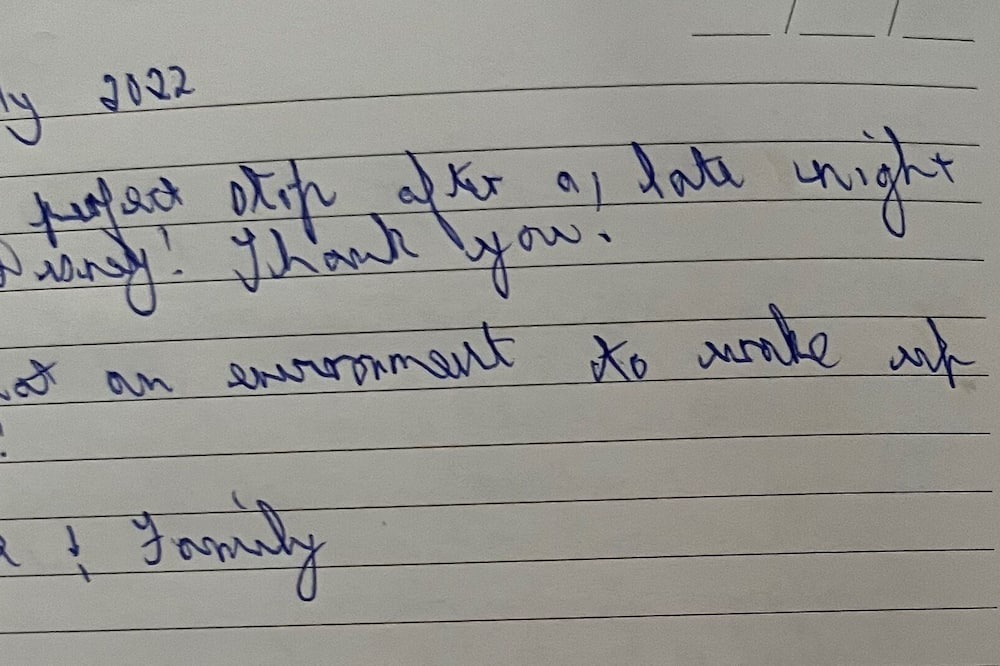 ly 2022
perfect stop after a, late night
Disney! Thank you.
at an environment to wake up
!
& Family